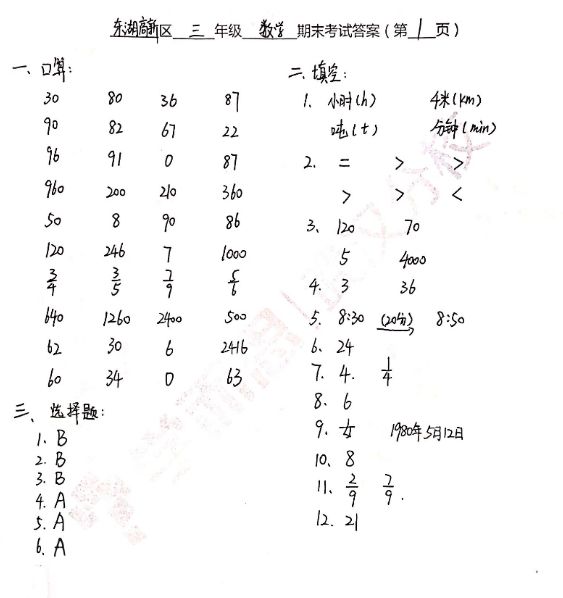 东湖高新区 三 年级 数学 期末考试答案（第 1 页）
一、口算：
30 80 36 87
90 82 67 22
96 91 0 87
960 200 210 360
50 8 90 86
120 246 7 1000
3/4 3/5 7/9 5/6
640 1260 2400 500
62 30 6 2416
60 34 0 63
三、选择题：
1. B
2. B
3. B
4. A
5. A
6. A
二、填空：
1. 小时(h) 4米(km)
吨(t) 分钟(min)
2. = > >
> > <
3、120 70
5 4000
4. 3 36
5. 8:30 (20分) 8:50
6. 24
7. 4. 1/4
8. 6
9. 女 1980年5月12日
10. 8
11. 2/9 7/9.
12. 21
学而思
武汉分校